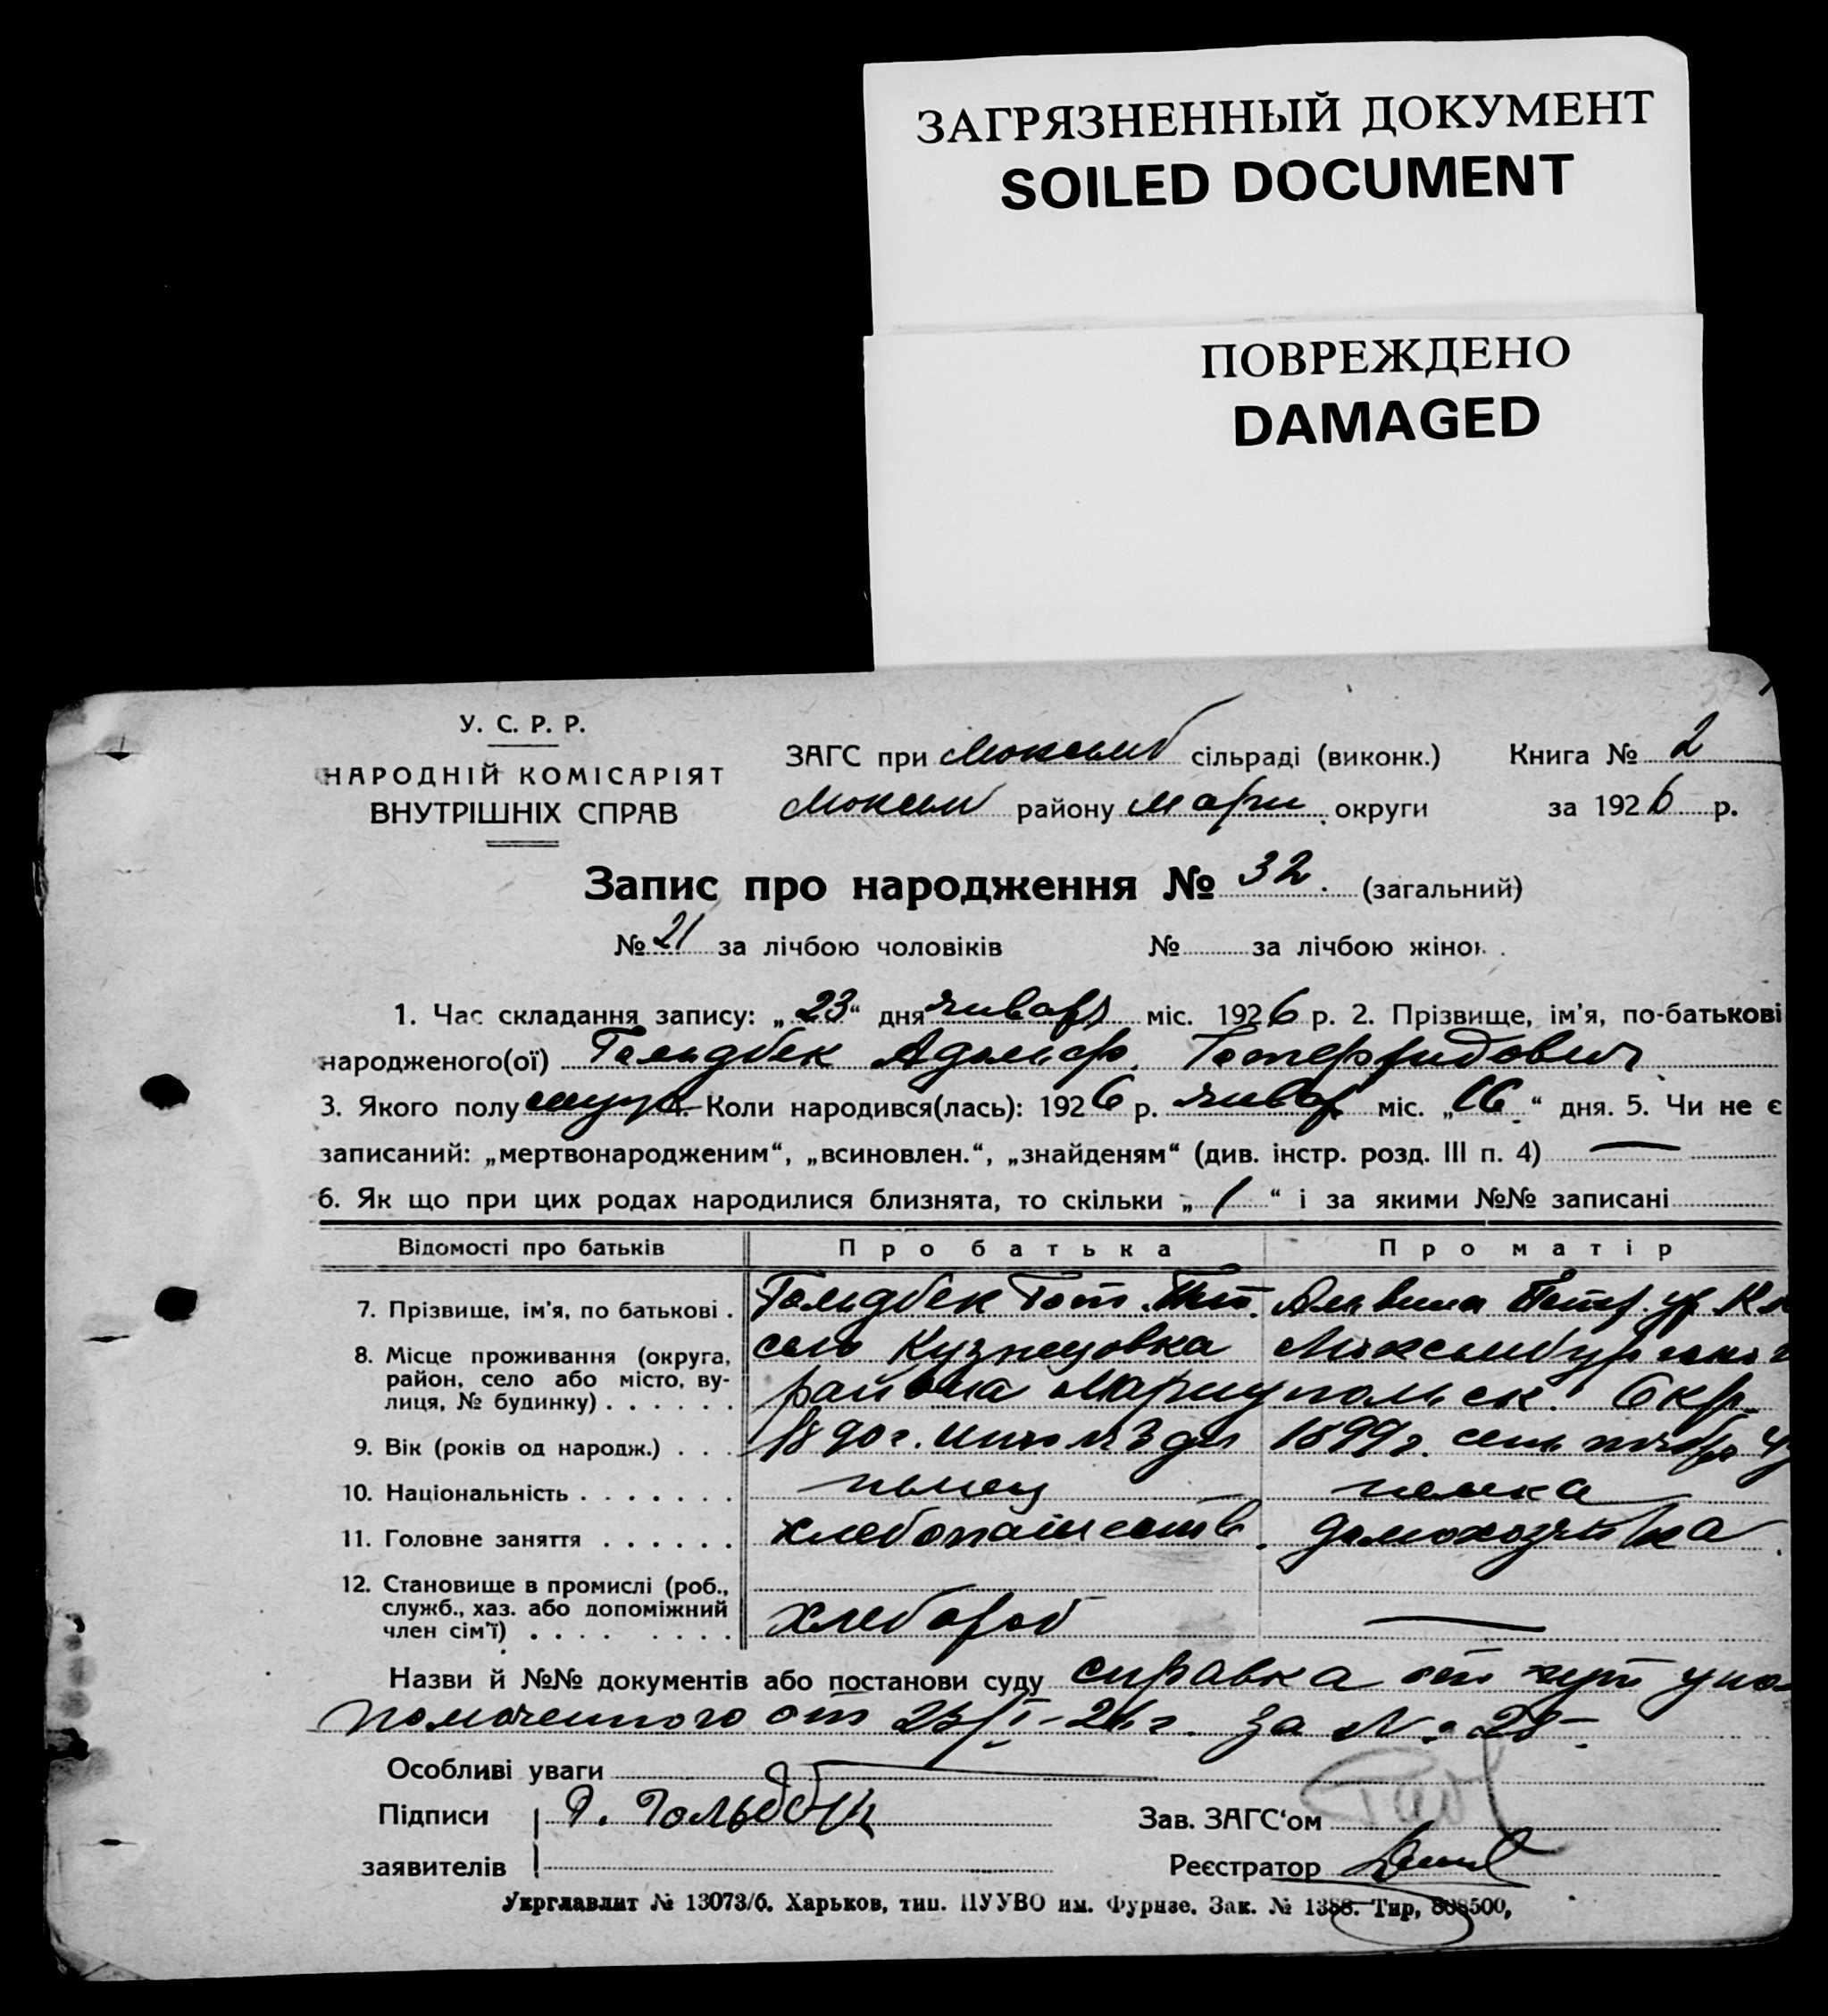 ЗАГРЯЗНЕННЫЙ ДОКУМЕНТ
SOILED DOCUMENT
ПОВРЕЖДЕНО
DAMAGED
У. С. Р. Р.
НАРОДНІЙ КОМІСАРІЯТ
ВНУТРІШНІХ СПРАВ
ЗАГС при Люксемб сільраді (виконк.) Книга № 2
Люксем району Мари округи за 1926 р.
Запис про народження № 32. (загальний)
№ 21 за лічбою чоловіків № за лічбою жінок.
1. Час складання запису: „23“ дня января міс. 1926 р. 2. Прізвище, ім'я, по-батькові
народженого(ої) Гольдбек Адольф Готерфидович
3. Якого полу муж. Коли народився(лась): 1926 р. январ міс. „16“ дня. 5. Чи не є
записаний: „мертвонародженим“, „всиновлен.“, „знайденям“ (див. інстр. розд. III п. 4) —
6. Як що при цих родах народилися близнята, то скільки „1“ і за якими №№ записані
Відомості про батьків Про батька Про матір
7. Прізвище, ім'я, по батькові . Гольдбек Гот. Альвина ур.
8. Місце проживання (округа, село Кузнецовка Люксембург
район, село або місто, ву-
лиця, № будинку) . . . . . . района Мариупольск. Окр.
9. Вік (років од народж.) . . . 1890 г. июля 3 дня 1899 г. сентября
10. Національність . . . . . . . немец немка
11. Головне заняття . . . . . . хлебопашество. домохозяйка.
12. Становище в промислі (роб.,
служб., хаз. або допоміжний хлебороб —
член сім'ї) . . . . . . . .
Назви й №№ документів або постанови суду справка от упол
номоченного от 23/I-26 г. за № 28
Особливі уваги
Підписи Г. Гольдбек Зав. ЗАГС'ом
заявителів Реєстратор
Укрглавлит № 13073/б. Харьков, тип. ПУУВО им. Фрунзе. Зак. № 1388. Тир, 808500,